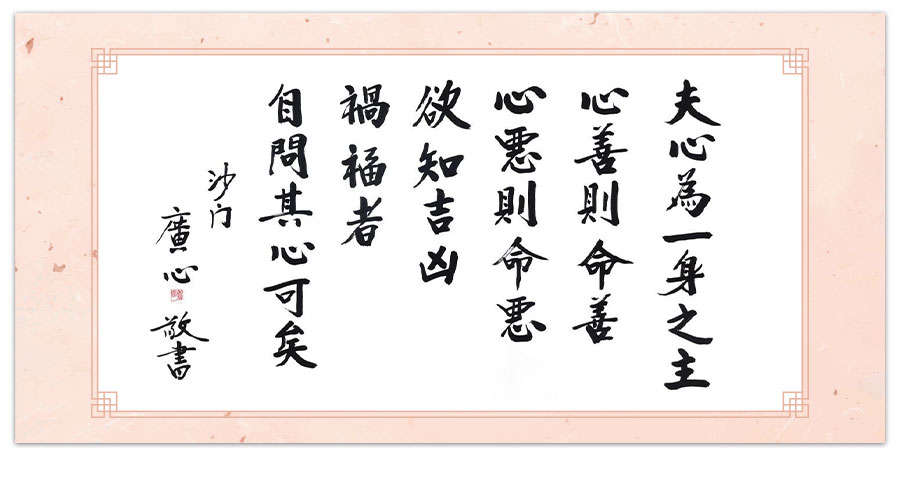 夫心為一身之主
心善則命善
心悪則命悪
欲知吉凶
禍福者
自問其心可矣
沙门
廣心
敬書